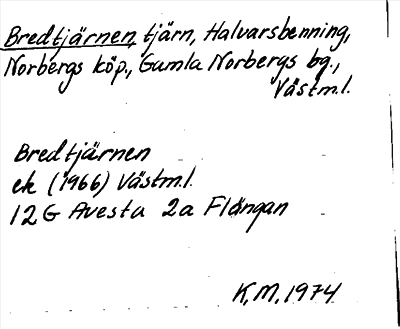 Bredtjärnen, tjärn, Halvarsbenning,
Norbergs köp., Gamla Norbergs bg.,
Västm.l.
Bredtjärnen
ek (1966) Västm.l.
12G Avesta 2a Flängan
K.M. 1974